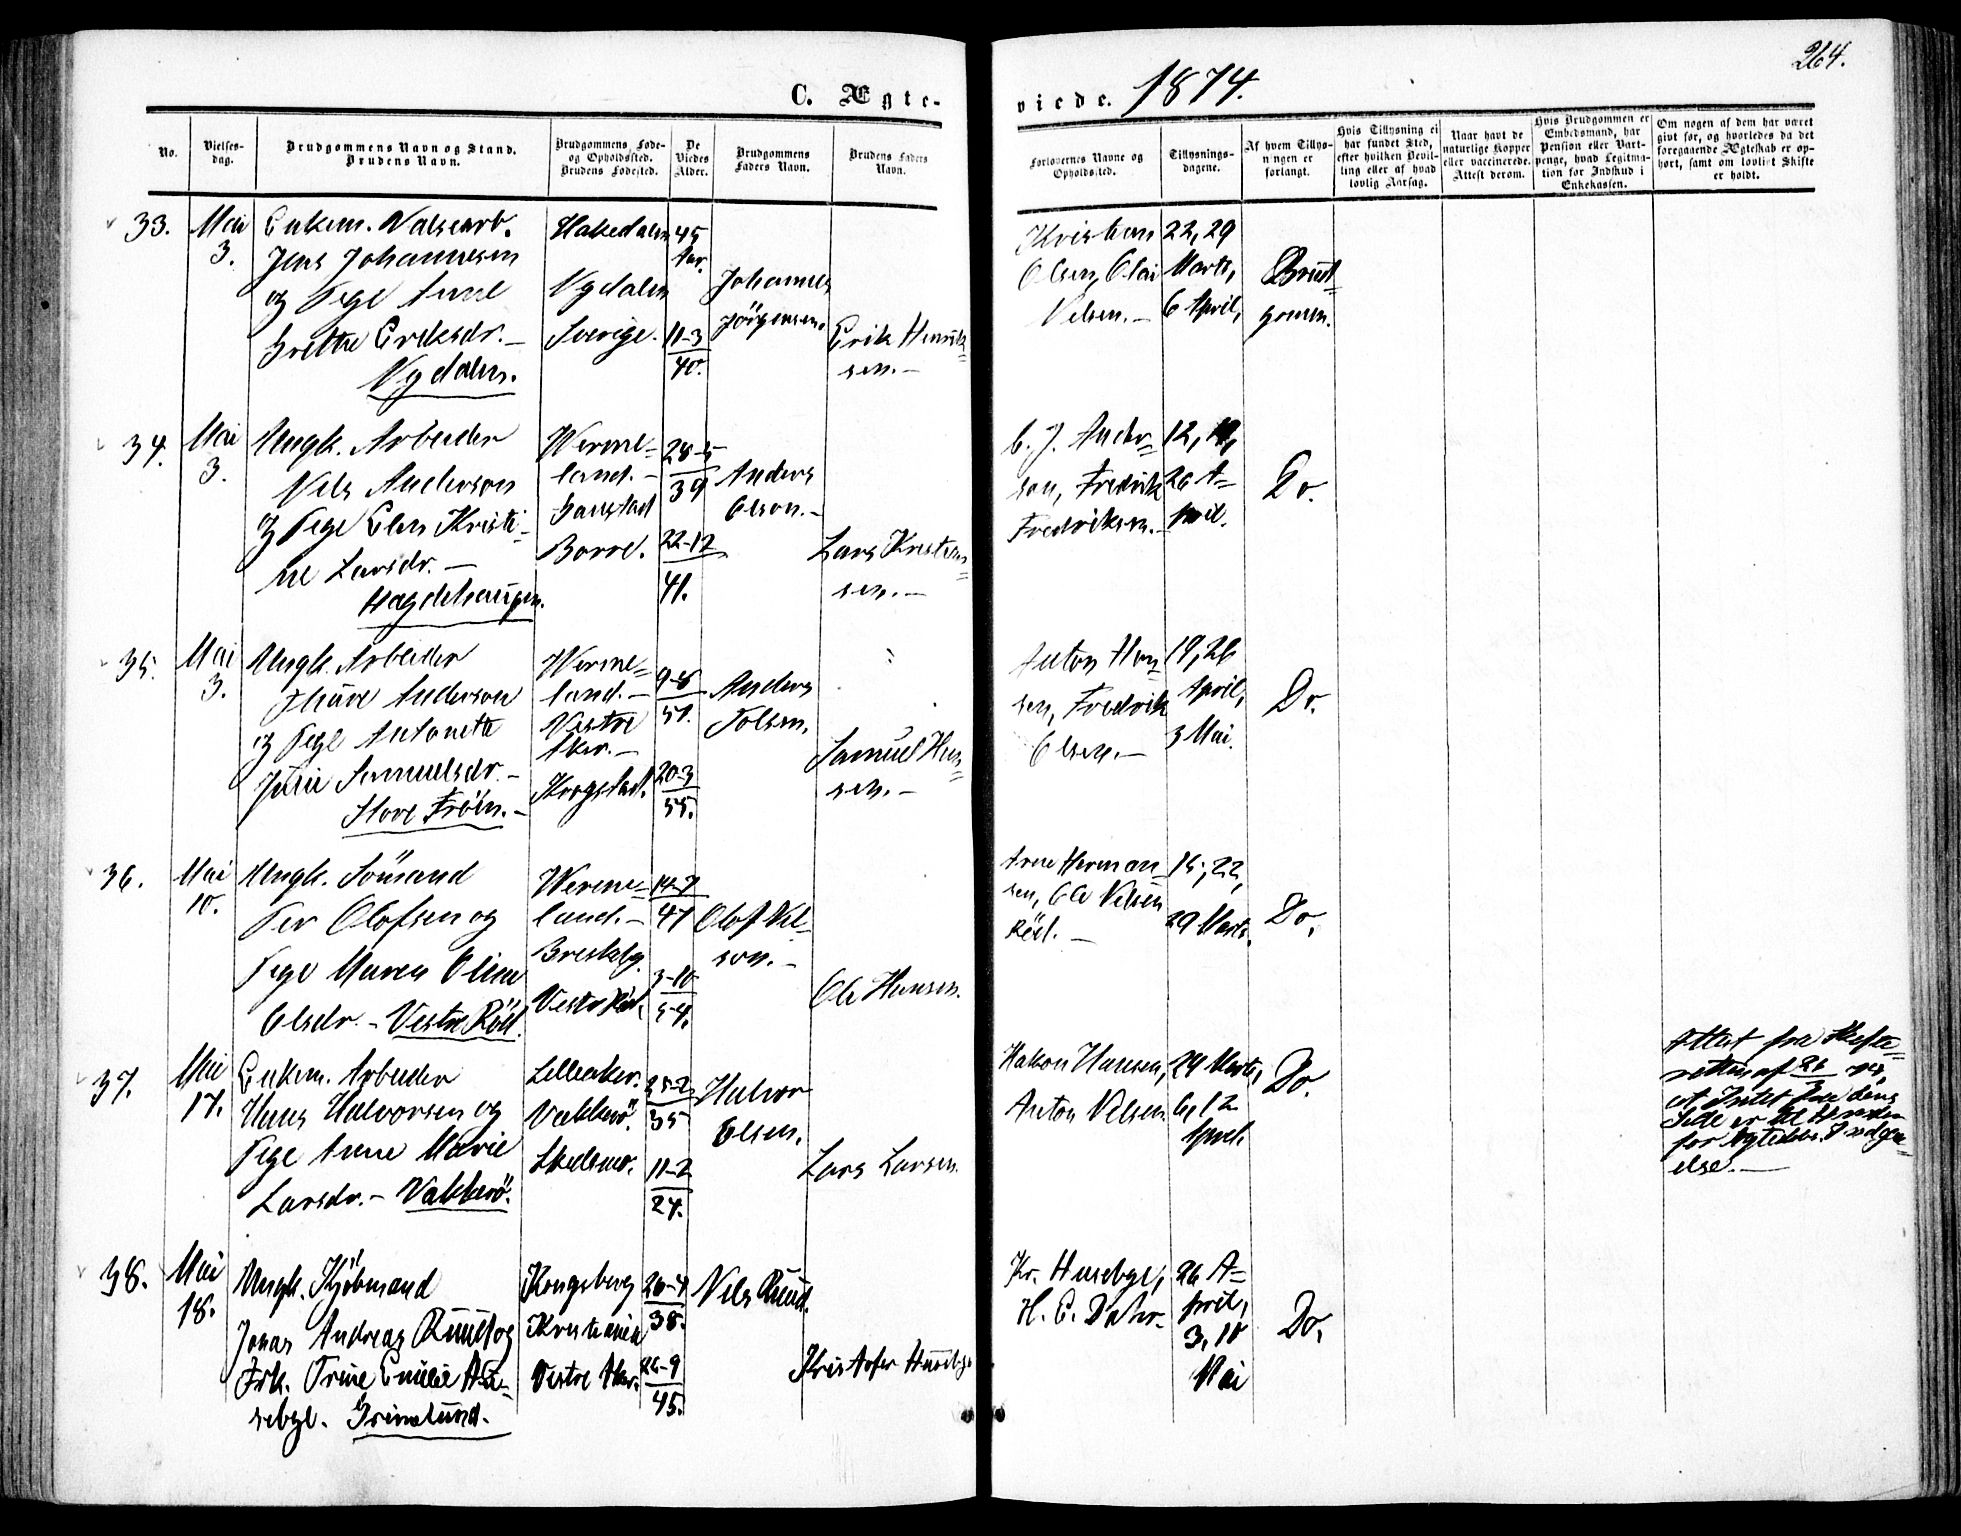 264.
C. Ægte-
viede. 1874.
No.
Vielses-
dag.
Brudgommens Navn og Stand.
Brudens Navn.
Brudgommens Føde-
og Opholdssted.
Brudens Fødested.
De
Viedes
Alder.
Brudgommens
Faders Navn.
Brudens Faders
Navn.
Forlovernes Navne og
Opholdssted.
Tillysnings-
dagene.
Af hvem Tillys-
ningen er
forlangt.
Hvis Tillysning ei
har fundet Sted,
efter hvilken Bevil-
ling eller af hvad
lovlig Aarsag.
Naar havt de
naturlige Kopper
eller vaccinerede.
Attest derom.
Hvis Brudgommen er
Embedsmand, har
Pension eller Vart-
penge, hvad Legitima-
tion for Indskud i
Enkekassen.
Om nogen af dem har været
givt før, og hvorledes da det
foregaaende Ægteskab er op-
hørt, samt om lovligt Skifte
er holdt.
33.
Mai
3.
Enkem. Valsearb.
Jens Johannesen
og Pige Anne
Grethe Eriksdr. –
Nydalen.
Hakedalen
Nydalen
Sverige.
45
Aar.
11-3
40.
Johannes
Jörgensen.
Erik Henrik=
sen. –
Kristian
Olsen, Olai
Nelsen. –
22, 29
Marts,
6 April,
Brud=
gomm.
34.
Mai
3.
Ungk. Arbeider
Nels Anderson
og Pige Elen Kristi-
ne Larsdr. –
Hagdehaugen.
Werme=
land. –
Borre.
28-5
39
22-12
41.
Anders
Olson. –
Lars Kristen=
sen. –
C. J. Ander=
son, Fredrik
Fredriksen. –
12, 19,
26 A=
pril.
Do.
35.
Mai
3.
Ungk. Arbeider
Anderson
og Pige Antonette
Julie Samuelsdr. –
Store Fröen. –
Werme=
land. –
Vestre
Aker. –
Krogstad.
9-8
51.
20-3
55.
Anders
Samuel Han=
sen. –
Anton Han=
sen, Fredrik
Olsen. –
19, 26
April,
3 Mai.
Do.
36.
Mai
10.
Ungk. Sömand
Per Olofsen og
Pige Maren Oline
Olsdr. – Vestre Röd.
Werme=
land. –
Vestre Röd.
14-7
47
3-10
54.
Olof Nel=
son. –
Ole Hansen.
Arne Herman-
sen, Ole Nelsen
Röd. –
15, 22,
29 Marts.
Do.
37.
Mai
17.
Enkem. Arbeider
Hans Halvorsen og
Pige Anne Marie
Larsdr. – Vækkerö.
Lilleaker.
Vækkerö.
Skedsmo.
25-2
35
11-2
24.
Halvor
Olsen.
Lars Larsen.
Hakon Hansen,
Anton Nelsen.
29 Marts,
6, 12
April.
Do.
Attest fra Skifte-
retten af 26/3
at Intet fra dens
Side er til Hinder
for Ægteskabs Indgaa=
else. –
38.
Mai
18.
Ungk. Kjöbmand
Jonas Andreas Ruud og
Frk. Trine Emilie Hu=
sebye. Grinelund.
Kongsberg
Kristiania
Vestre Aker.
20-4
38.
26-9
45.
Nels Ruud.
Kristofer Husebye
Kr. Husebye,
H. E. Dahr.
26 A=
pril,
3, 10
Mai
Do.